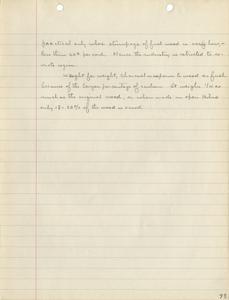 practical only when stumpage of fuel wood is very low,-
less than 50¢ per cord. Hence the industry is restricted to re-
mote regions.
Weight for weight, charcoal is superior to wood as fuel
because of the larger percentage of carbon. It weighs 1/4 as
much as the original wood, or when made in open
only 18-20% of the wood is saved.